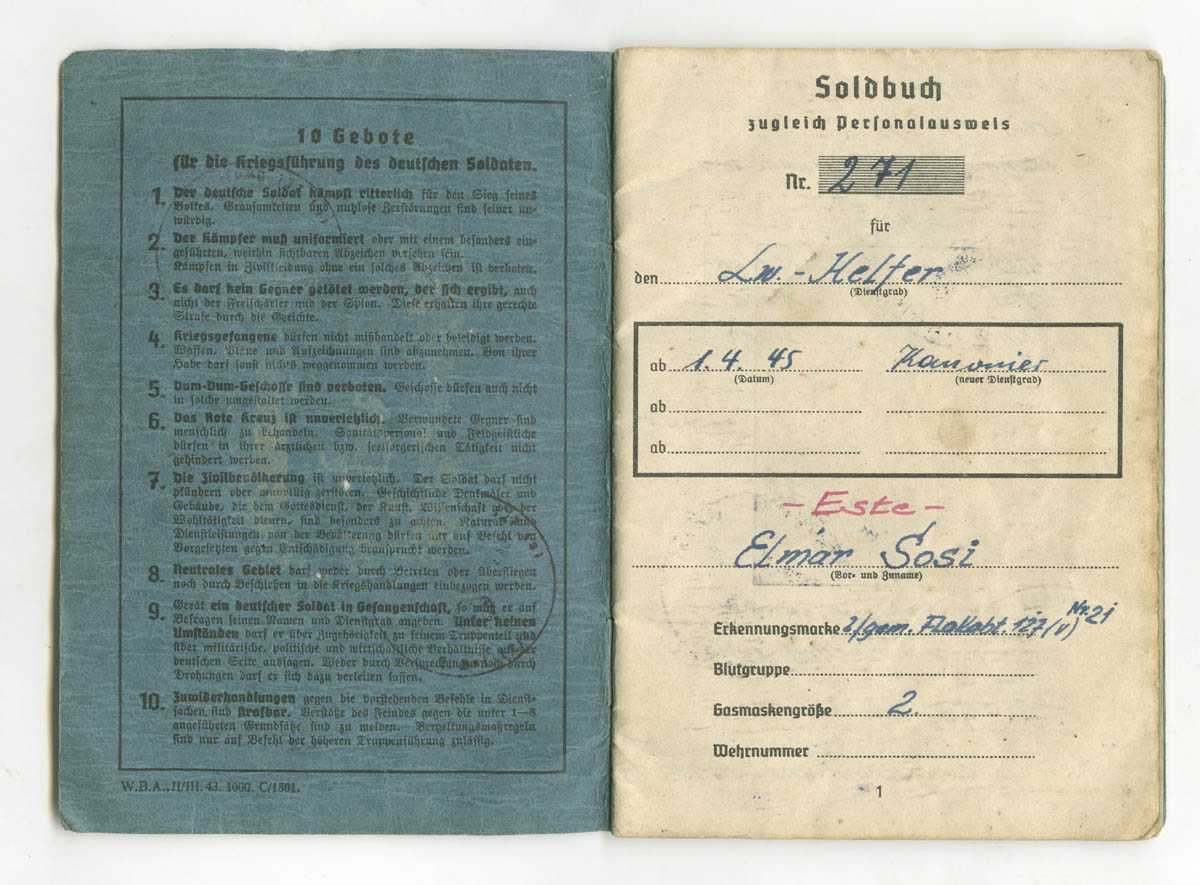 10 Gebote
für die Kriegsführung des deutschen Soldaten.
1. Der deutsche Soldat kämpft ritterlich für den Sieg seines
Volkes. Grausamkeiten und nutzlose Zerstörungen sind seiner un-
würdig.
2. Der Kämpfer muß uniformiert oder mit einem besonders ein-
geführten, weithin sichtbaren Abzeichen versehen sein.
Kämpfen in Zivilkleidung ohne ein solches Abzeichen ist verboten.
3. Es darf kein Gegner getötet werden, der sich ergibt, auch
nicht der Freischärler und der Spion. Diese erhalten ihre gerechte
Strafe durch die Gerichte.
4. Kriegsgefangene dürfen nicht mißhandelt oder beleidigt werden.
Waffen, Pläne und Aufzeichnungen sind abzunehmen. Von ihrer
Habe darf sonst nichts weggenommen werden.
5. Dum-Dum-Geschosse sind verboten. Geschosse dürfen auch nicht
in solche umgestaltet werden.
6. Das Rote Kreuz ist unverletzlich. Verwundete Gegner sind
menschlich zu behandeln. Sanitätspersonal und Feldgeistliche
dürfen in ihrer ärztlichen bzw. seelsorgerischen Tätigkeit nicht
gehindert werden.
7. Die Zivilbevölkerung ist unverletzlich. Der Soldat darf nicht
plündern oder mutwillig zerstören. Geschichtliche Denkmäler und
Gebäude, die dem Gottesdienst, der Kunst, Wissenschaft oder der
Wohltätigkeit dienen, sind besonders zu achten. Natural- und
Dienstleistungen von der Bevölkerung dürfen nur auf Befehl von
Vorgesetzten gegen Entschädigung beansprucht werden.
8. Neutrales Gebiet darf weder durch Betreten oder Überfliegen
noch durch Beschießen in die Kriegshandlungen einbezogen werden.
9. Gerät ein deutscher Soldat in Gefangenschaft, so muß er auf
Befragen seinen Namen und Dienstgrad angeben. Unter keinen
Umständen darf er über Zugehörigkeit zu seinem Truppenteil und
über militärische, politische und wirtschaftliche Verhältnisse auf der
deutschen Seite aussagen. Weder durch Versprechungen noch durch
Drohungen darf er sich dazu verleiten lassen.
10. Zuwiderhandlungen gegen die vorstehenden Befehle in Dienst-
sachen sind strafbar. Verstöße des Feindes gegen die unter 1—8
angeführten Grundsätze sind zu melden. Vergeltungsmaßregeln
sind nur auf Befehl der höheren Truppenführung zulässig.
W.B.A., II/III. 43. 1000. C/1501.
Soldbuch
zugleich Personalausweis
Nr. 271
für
den Lw.-Helfer
(Dienstgrad)
ab 1.4.45 Kanonier
(Datum) (neuer Dienstgrad)
ab
ab
-Este-
Elmar Sosi
(Vor- und Zuname)
Erkennungsmarke 2/gem. Flakabt. 127(v) Nr. 21
Blutgruppe
Gasmaskengröße 2.
Wehrnummer
1